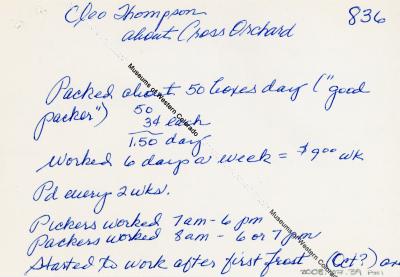 Cleo Thompson 836
about Cross Orchard
Packed about 50 boxes day ("good
packer") 50
3¢ each
1.50 day
Worked 6 days a week = $900 wk
Pd every 2 wks.
Pickers worked 7am - 6 pm
Packers worked 8am - 6 or 7 pm
Started to work after first frost (Oct?) and
Museums of Western Colorado
Museums of Western Colorado